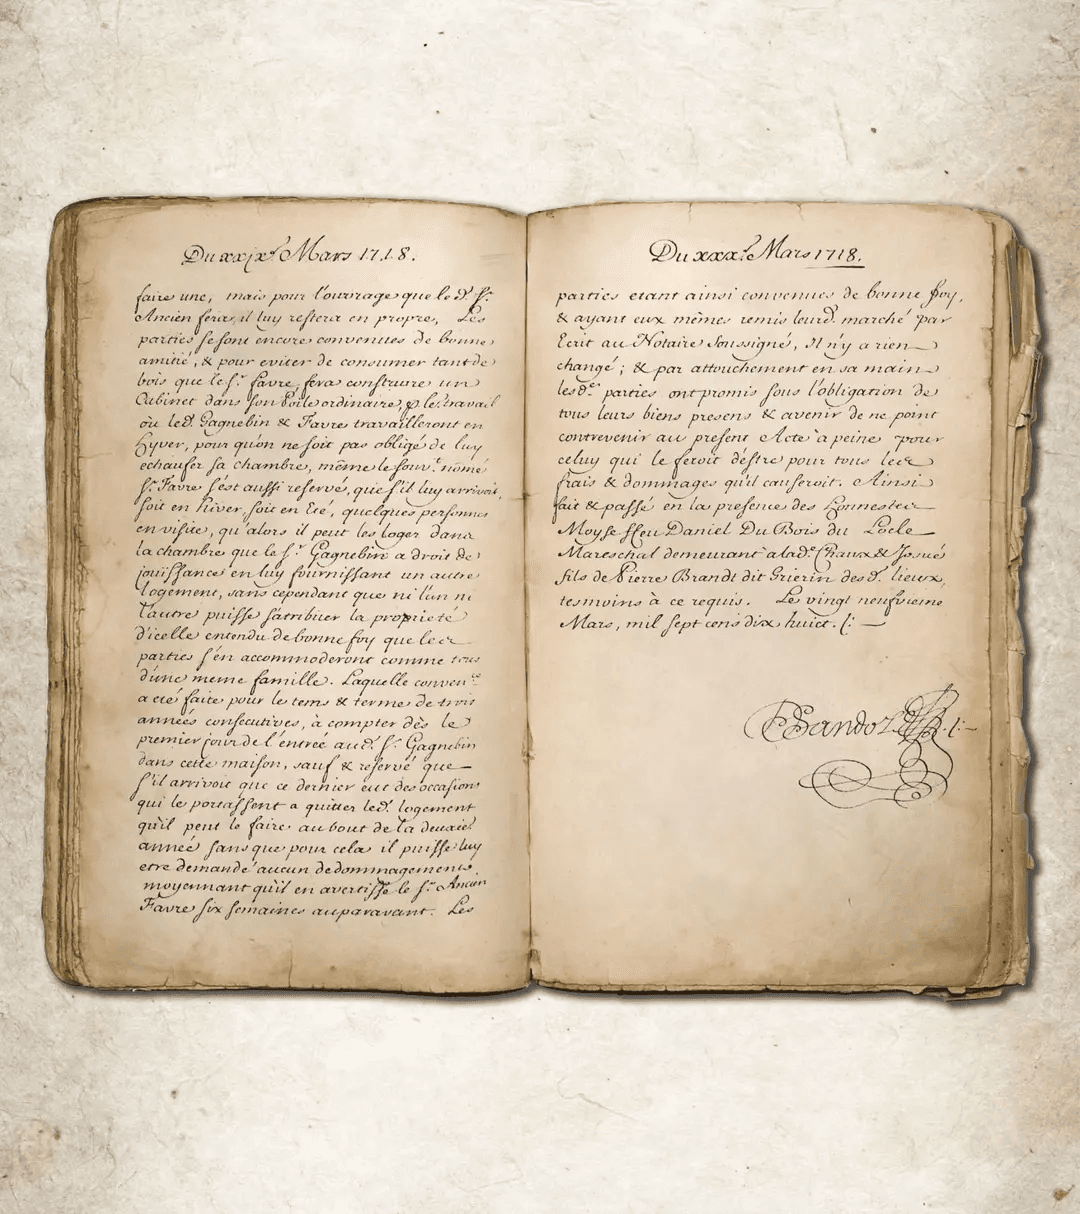 Du xxjx.e Mars 1718.
faire une, mais pour l'ouvrage que le d.t S.r
Ancien fera, il luy restera en propre, Les
parties se sont encore convenues de bonne
amitié, & pour eviter de consumer tant de
bois que le S.r Favre, fera construire un
Cabinet dans son Poile ordinaire, & le travail
où led.t Gagnebin & Favre travailleront en
Hyver, pour qu'on ne soit pas obligé de luy
echaufer sa chambre, même le souv.t nomé
S.r Favre s'est aussi reservé, que s'il luy arrivoit,
soit en hiver, soit en Eté, quelques personnes
en visite, qu'alors il peut les loger dans
la chambre que le S.r Gagnebin a droit de
jouissance en luy fournissant un autre
logement, sans cependant que ni l'un ni
l'autre puisse s'atribuer la proprieté
d'icelle entendu de bonne foy que les
parties s'en accommoderont comme tous
d'une meme famille. Laquelle conven.ce
a eté faite pour le tems & terme de trois
années consecutives, à compter dès le
premier jour de l'entrée aud.t S.r Gagnebin
dans cette maison, sauf & reservé que
s'il arrivoit que ce dernier eut des occasions
qui le portassent a quitter led.t logement
qu'il peut le faire au bout de la
année sans que pour cela il puisse luy
etre demandé aucun dedommagement
moyennant qu'il en avertisse le S.r Ancien
Favre six semaines auparavant. Les
Du xxx.e Mars 1718.
parties etant ainsi convenues de bonne foy,
& ayant eux mêmes remis leurd.t marché par
Ecrit au Notaire soussigné, Il n'y a rien
changé ; & par attouchement en sa main
lesd.es parties ont promis sous l'obligation de
tous leurs biens presens & avenir de ne point
contrevenir au present Acte à peine pour
celuy qui le feroit d'estre pour tous les
frais & dommages qu'il causeroit. Ainsi
fait & passé en la presence des Honnestes
Moyse ffeu Daniel Du Bois du Locle
Mareschal demeurant à lad.e Chaux & Josué
fils de Pierre Brandt dit Grierin des d.t lieux,
tesmoins à ce requis. Le vingt neufvieme
Mars, mil sept cens dix huict. /: —
Sandoz